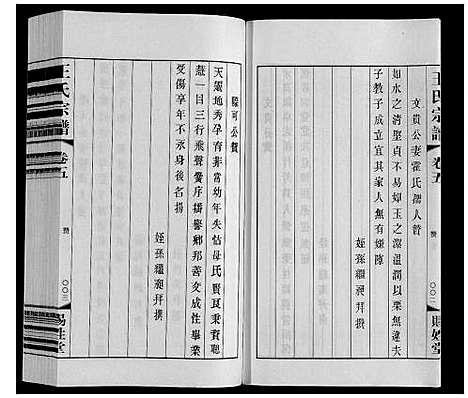 王氏宗譜 卷五
贊
〇〇二
賜姓堂
文貴公妻霍氏孺人贊
如水之清堅貞不易如玉之潔溫潤以栗無違夫
子教子成立宜其家人無有嫌隙
姪孫繼昶拜撰
可公贊
天蘊地秀孕育非常幼年失怙母氏
一目三行飛聲黌序播譽鄉邦善交成性畢業
受傷享年不永身後名揚
姪孫繼昶拜撰
王氏宗譜
卷五
贊
〇〇三
賜姓堂